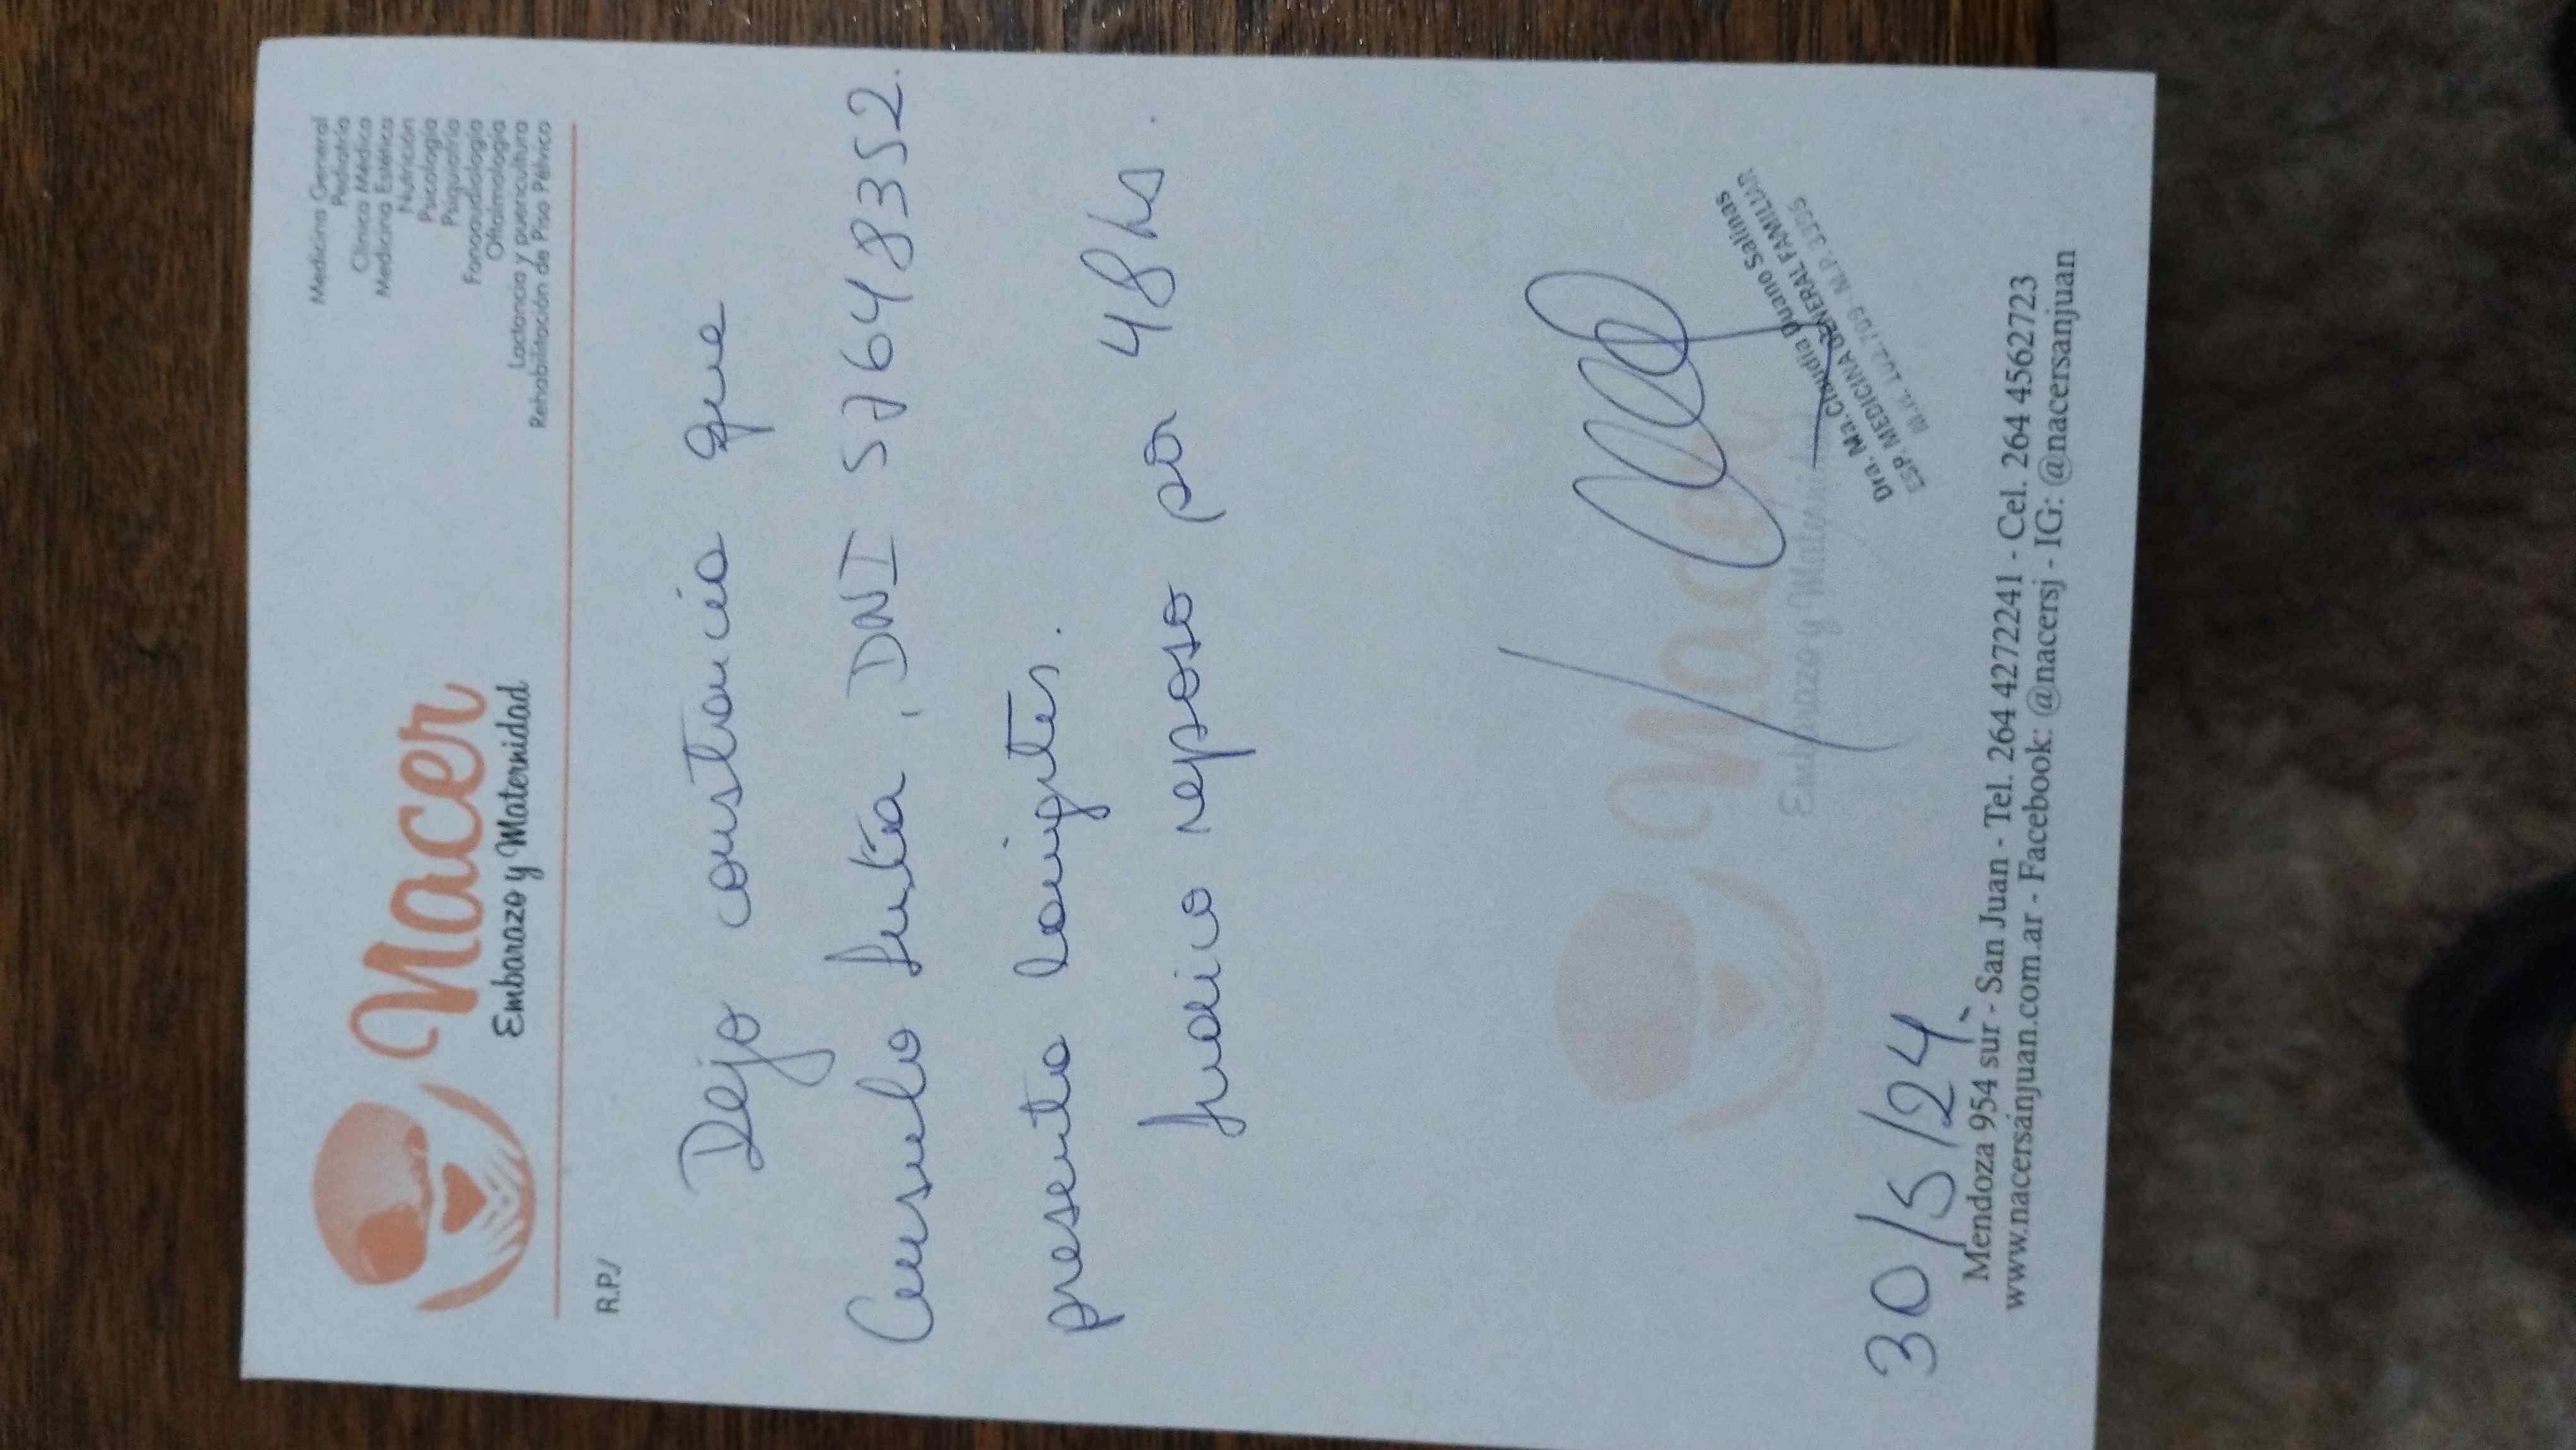 Nacer
Embarazo y Maternidad
Medicina General
Pediatría
Clínica Médica
Medicina Estética
Nutrición
Psicología
Psiquiatría
Fonoaudiología
Oftalmología
Lactancia y puericultura
Rehabilitación de Piso Pélvico
R.P./
Dejo constancia que
Consuelo , DNI 57648352.
presenta
Indico reposo por 48 hs.
Nacer
Embarazo y Maternidad
Dra. Ma. Claudia Salinas
ESP. MEDICINA GENERAL FAMILIAR
30/5/24
Mendoza 954 sur - San Juan - Tel. 264 4272241 - Cel. 264 4562723
www.nacersanjuan.com.ar - Facebook: @nacersj - IG: @nacersanjuan